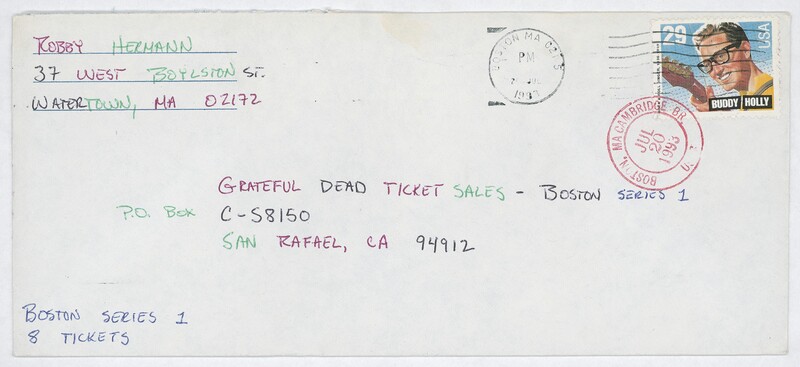 ROBBY HERMANN
37 WEST BOYLSTON ST.
WATERTOWN, MA 02172
BOSTON MA
PM
JUL
1993
29
USA
BUDDY HOLLY
BOSTON, MA CAMBRIDGE BR.
JUL
20
1993
GRATEFUL DEAD TICKET SALES - BOSTON SERIES 1
P.O. BOX C-S8150
SAN RAFAEL, CA 94912
BOSTON SERIES 1
8 TICKETS